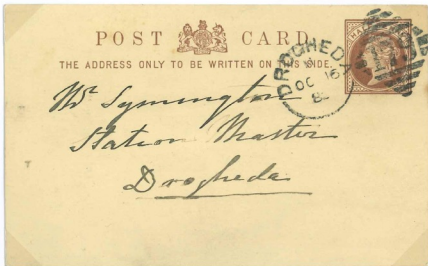 POST CARD
THE ADDRESS ONLY TO BE WRITTEN ON THIS SIDE.
DROGHEDA
OC 16
Mr. Symington
Station Master
Drogheda